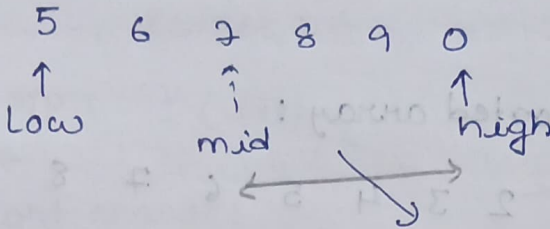 5 6 7 8 9 0
Low mid high